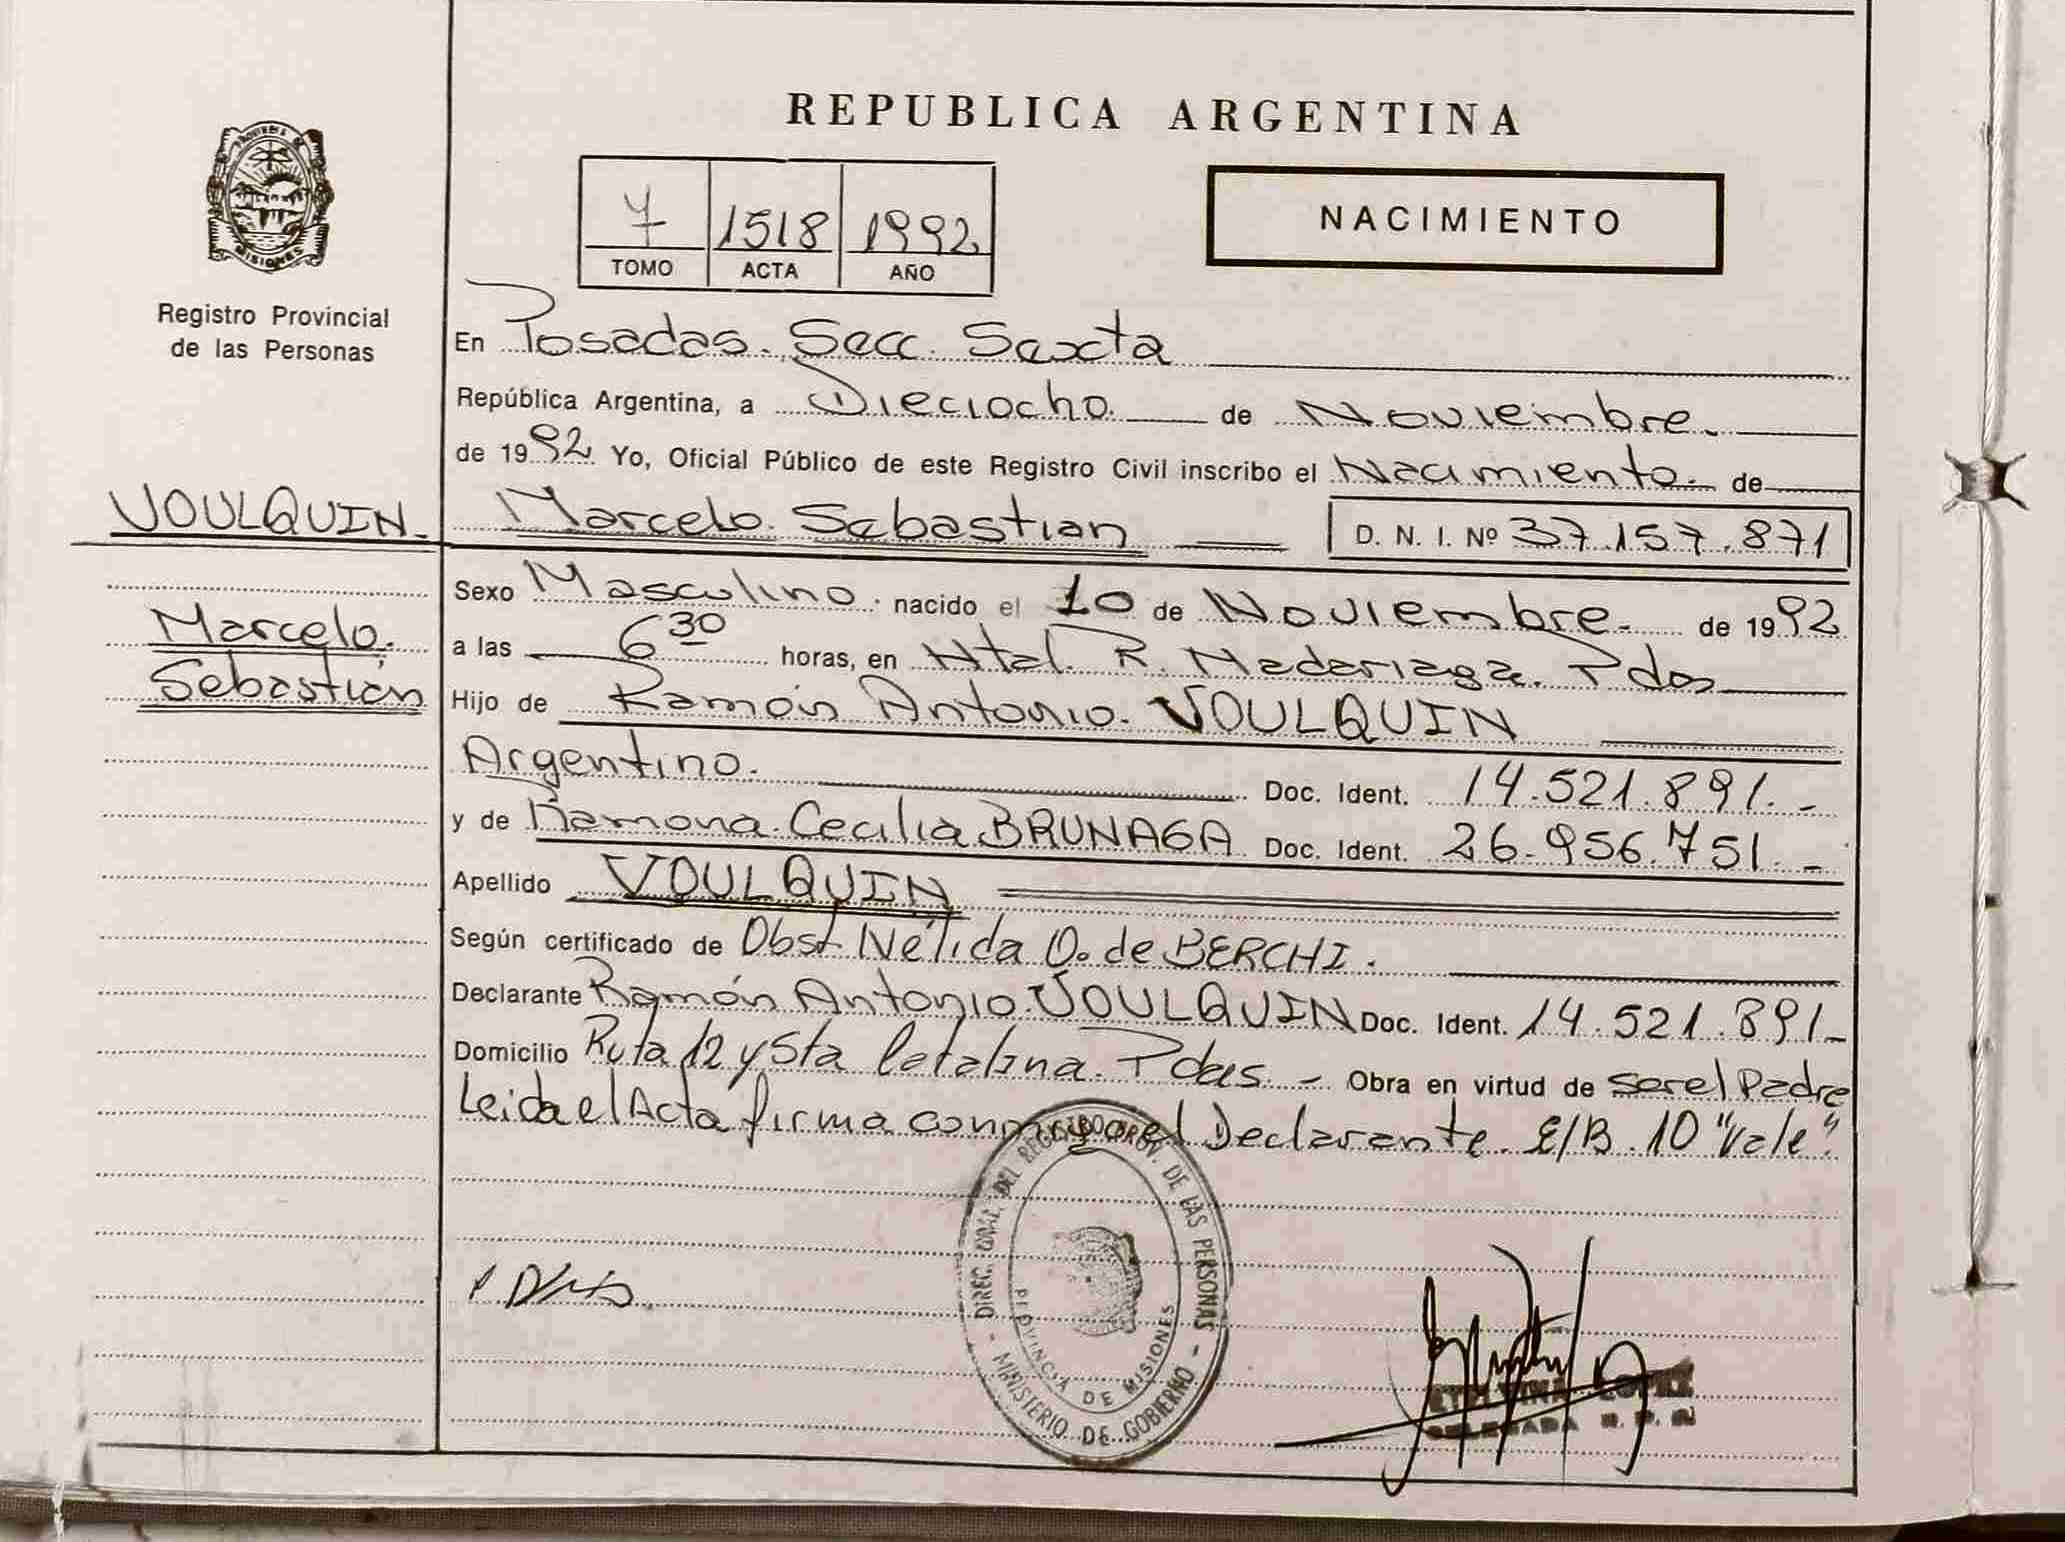 REPUBLICA ARGENTINA
PROVINCIA DE
MISIONES
Registro Provincial
de las Personas
7 1518 1992
TOMO ACTA AÑO
NACIMIENTO
En Posadas. Secc. Sexta
República Argentina, a Dieciocho. de Noviembre.
de 1992 Yo, Oficial Público de este Registro Civil inscribo el Nacimiento. de
VOULQUIN. Marcelo. Sebastian D. N. I. Nº 37.157.871
Marcelo.
Sebastián
Sexo Masculino. nacido el 10 de Noviembre. de 1992
a las 6 30 horas, en Htal. R. Madariaga. Pdas
Hijo de Ramón Antonio. VOULQUIN
Argentino. Doc. Ident. 14.521.891.-
y de Ramona. Cecilia BRUNAGA Doc. Ident. 26.956.751.-
Apellido VOULQUIN
Según certificado de Obst. Nélida O. de BERCHI.
Declarante Ramón Antonio. VOULQUIN Doc. Ident. 14.521.891-
Domicilio Ruta 12 y Sta Catalina. Pdas. - Obra en virtud de ser el Padre
Leida el Acta firma conmigo el Declarante. E/B. 10 "Vale".
DIREC. GRAL. DEL REGISTRO PROV. DE LAS PERSONAS
PROVINCIA DE MISIONES
- MINISTERIO DE GOBIERNO -
LOPEZ
DELEGADA R. P.